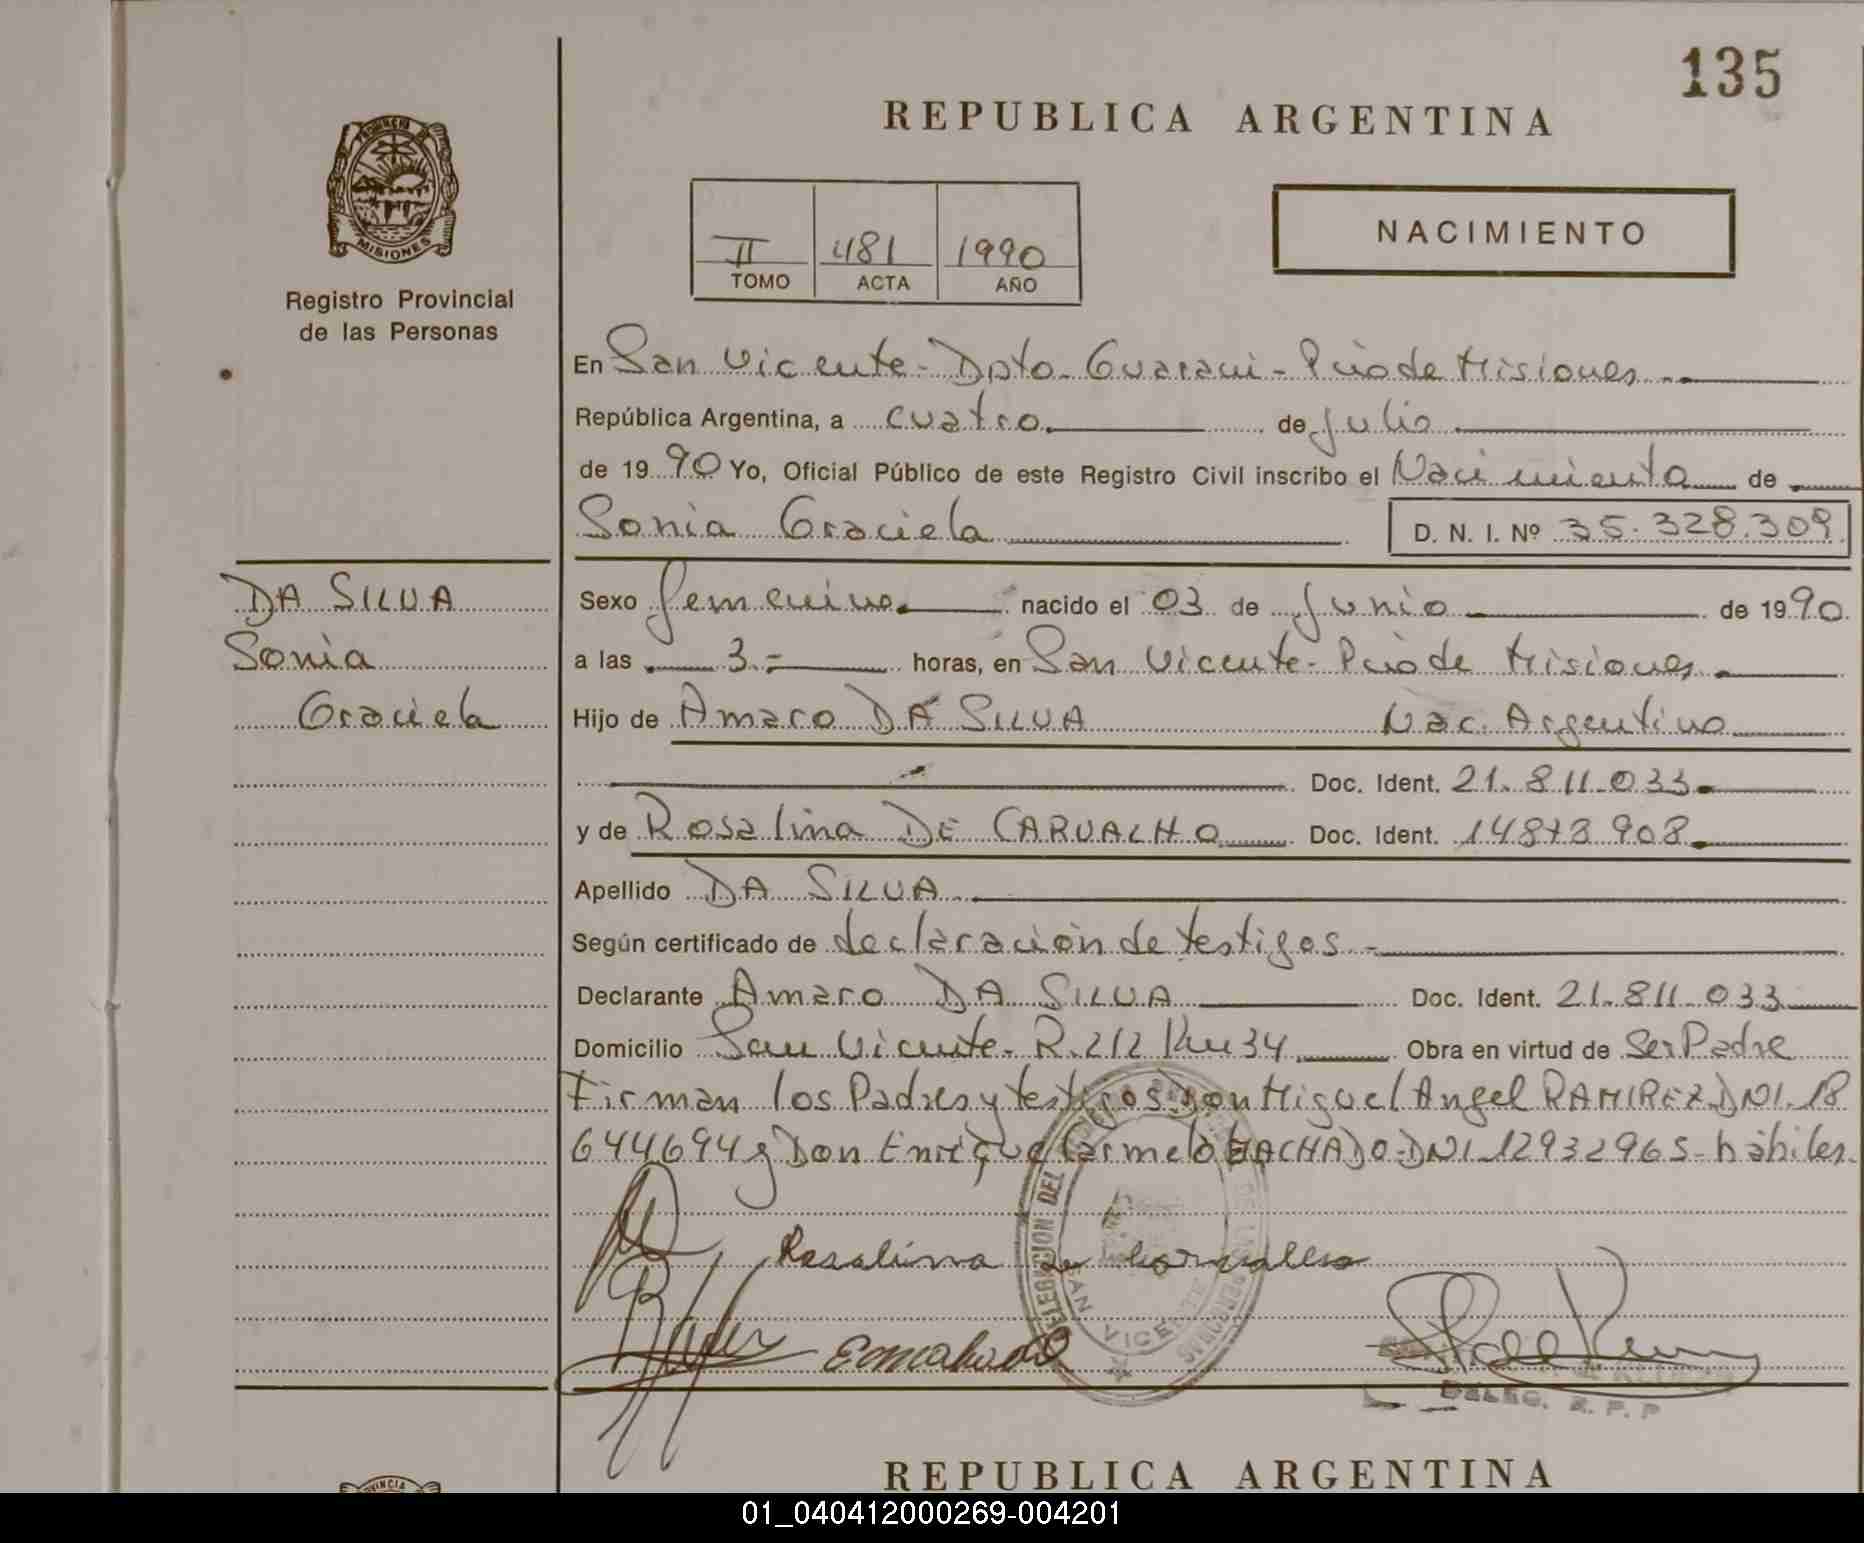 135
REPUBLICA ARGENTINA
PROVINCIA DE
MISIONES
Registro Provincial
de las Personas
II 481 1990
TOMO ACTA AÑO
NACIMIENTO
En San Vicente - Dpto. Guarani - Pcia de Misiones.
República Argentina, a cuatro. de Julio
de 1990 Yo, Oficial Público de este Registro Civil inscribo el Nacimiento de
Sonia Graciela D. N. I. Nº 35.328.309
DA SILVA
Sonia
Graciela
Sexo Femenino. nacido el 03 de Junio de 1990.
a las 3.- horas, en San Vicente - Pcia de Misiones.
Hijo de Amaro DA SILVA Nac. Argentino
Doc. Ident. 21.811.033.
y de Rosalina DE CARVALHO Doc. Ident. 14873908.
Apellido DA SILVA.
Según certificado de declaración de testigos.-
Declarante Amaro DA SILVA Doc. Ident. 21.811.033
Domicilio San Vicente - R.212 Km 34. Obra en virtud de Ser Padre
Firman los Padres y testigos Don Miguel Angel RAMIREZ DNI. 18
644694 y Don Enrique Carmelo MACHADO - DNI 12932965 - hábiles.
Rosalina de Carvallo
DELEGACION DEL
SAN VICENTE
DE LAS PERSONAS
DELEG. R. P. P
REPUBLICA ARGENTINA
01_040412000269-004201